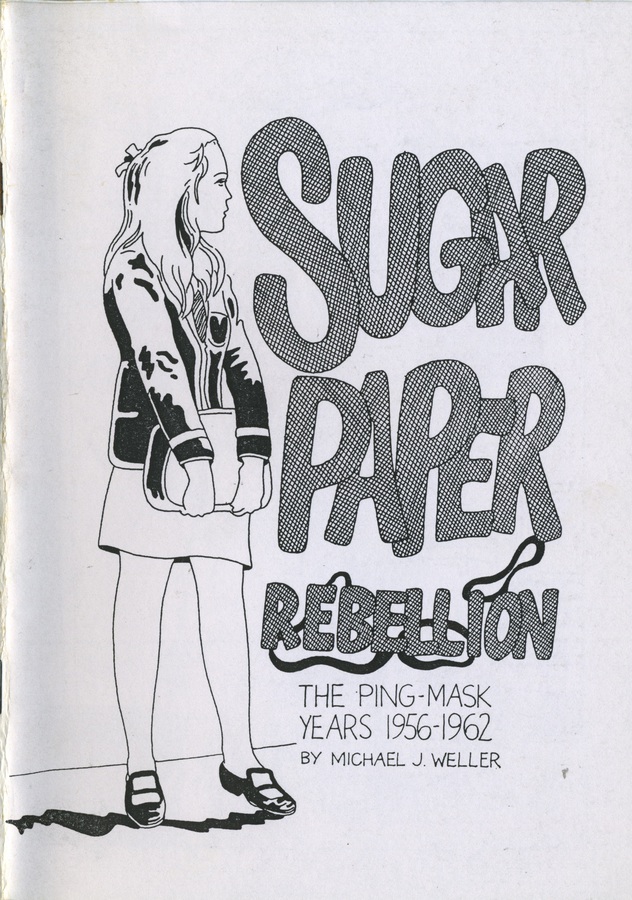 SUGAR
PAPER
REBELLION
THE PING-MASK
YEARS 1956-1962
BY MICHAEL J. WELLER